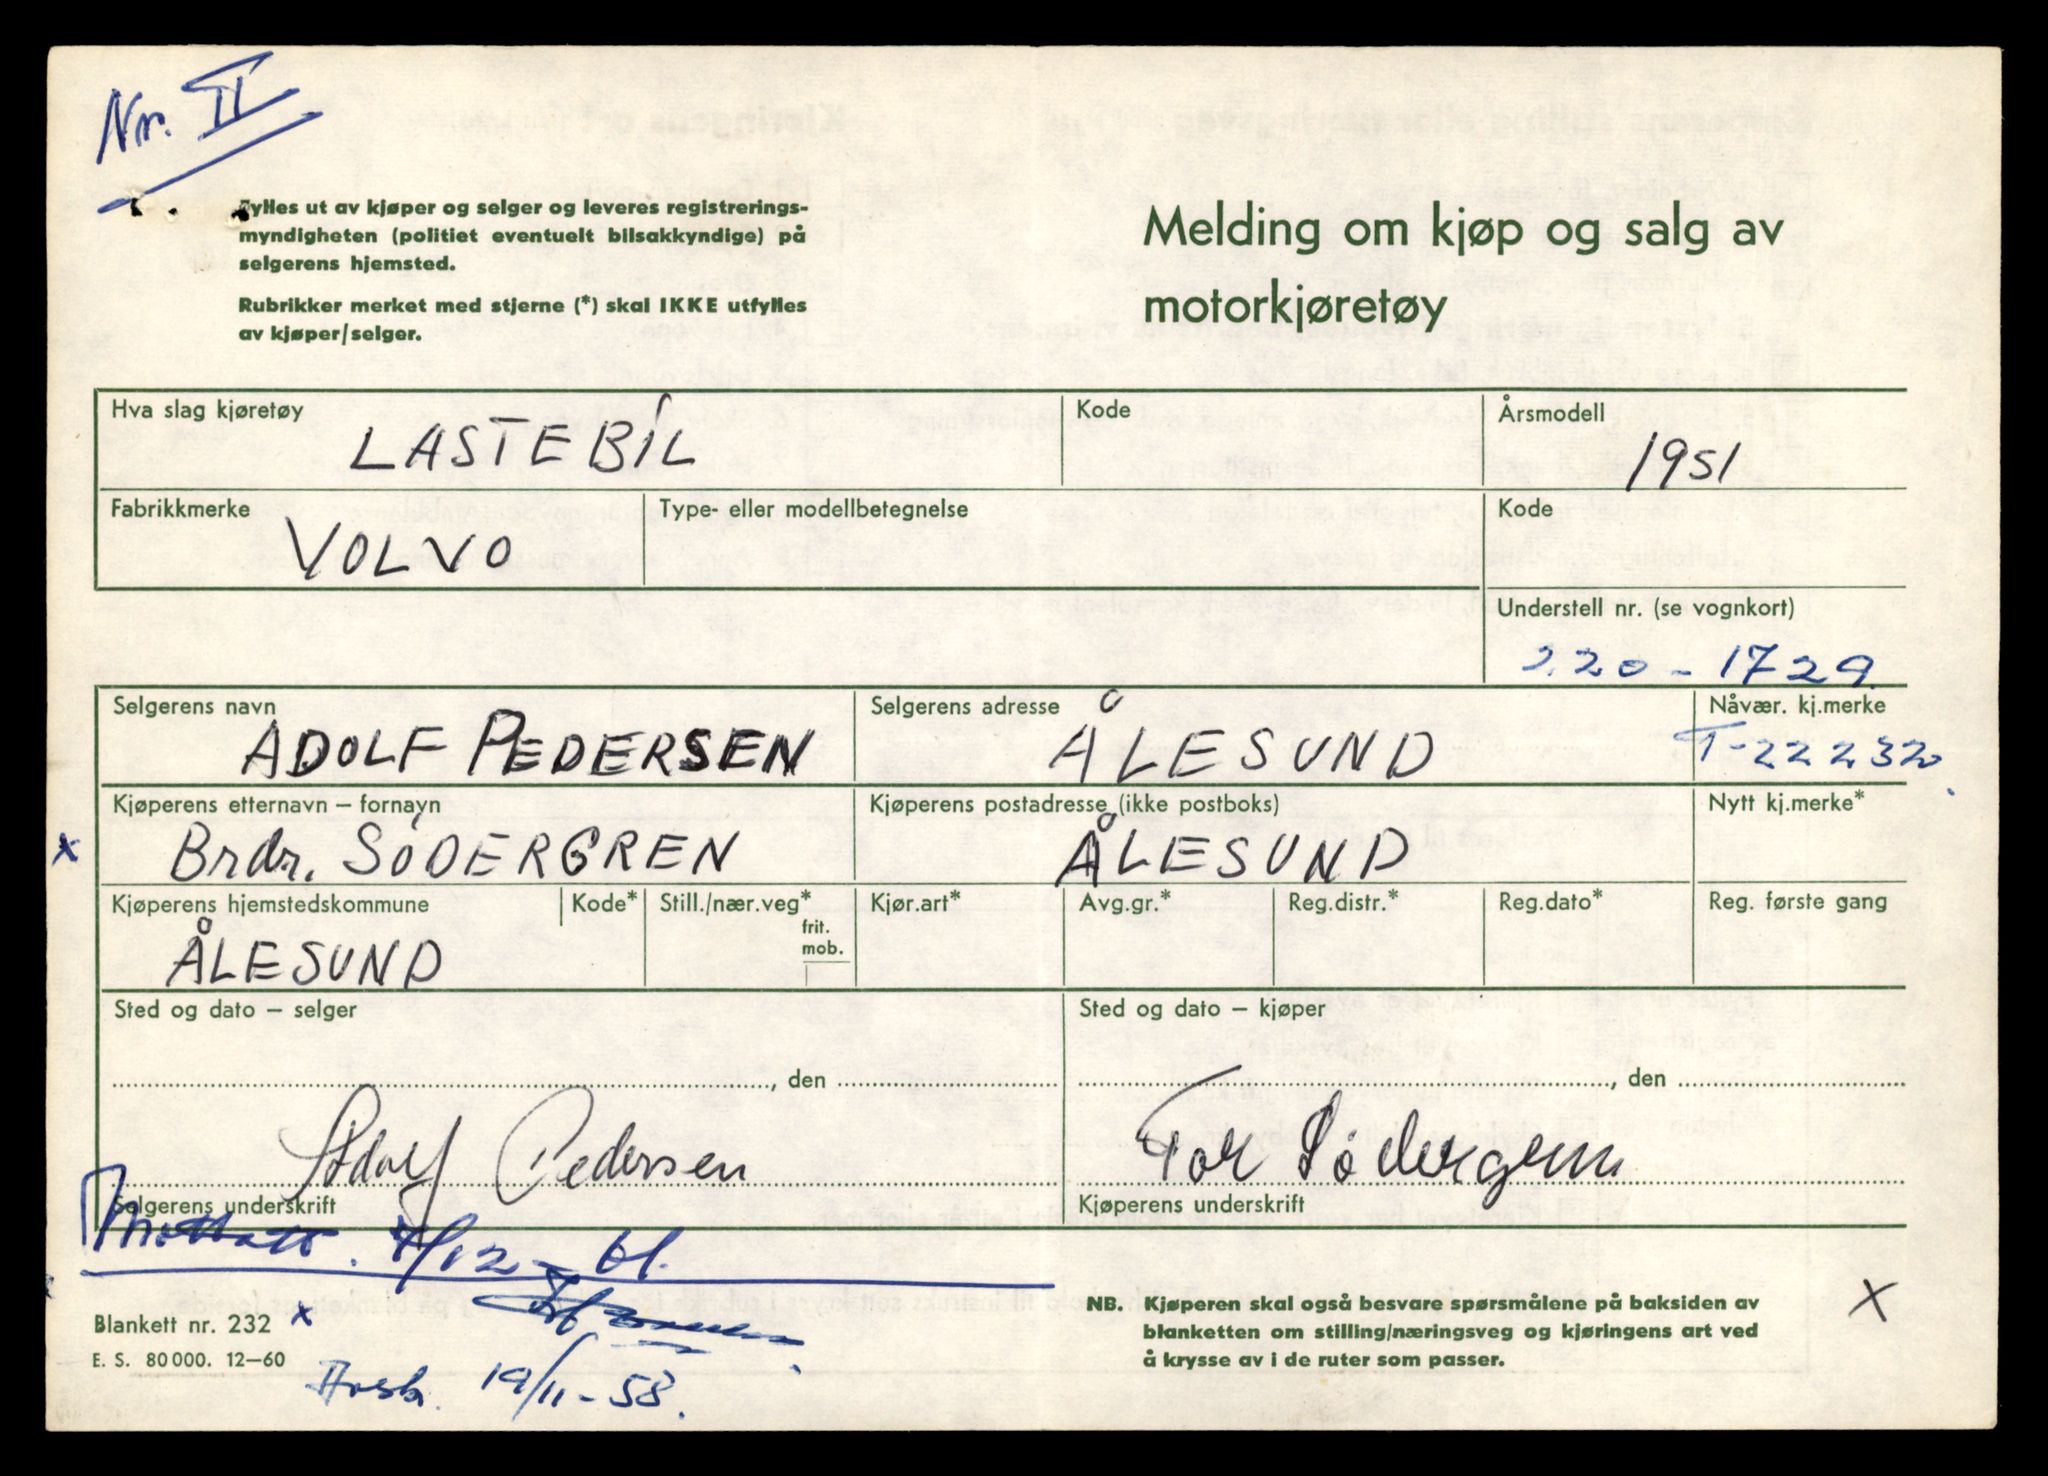 Nr. II
Fylles ut av kjøper og selger og leveres registrerings-
myndigheten (politiet eventuelt bilsakkyndige) på
selgerens hjemsted.
Rubrikker merket med stjerne (*) skal IKKE utfylles
av kjøper/selger.
Melding om kjøp og salg av
motorkjøretøy
Hva slag kjøretøy
LASTEBIL
Kode
Årsmodell
1951
Fabrikkmerke
VOLVO
Type- eller modellbetegnelse
Kode
Understell nr. (se vognkort)
220-1729
Selgerens navn
ADOLF PEDERSEN
Selgerens adresse
ÅLESUND
Nåvær. kj.merke
T-22232
Kjøperens etternavn – fornavn
x Brdr. SÖDERGREN
Kjøperens postadresse (ikke postboks)
ÅLESUND
Nytt kj.merke*
Kjøperens hjemstedskommune
ÅLESUND
Kode*
Still./nær.veg*
frit.
mob.
Kjør.art*
Avg.gr.*
Reg.distr.*
Reg.dato*
Reg. første gang
Sted og dato – selger
, den
Adolf Pedersen
Selgerens underskrift
Sted og dato – kjøper
, den
Tor Södergren
Kjøperens underskrift
Mottatt. 7/12-61.
Blankett nr. 232 x
E. S. 80 000. 12–60
19/11-58.
NB. Kjøperen skal også besvare spørsmålene på baksiden av
blanketten om stilling/næringsveg og kjøringens art ved
å krysse av i de ruter som passer.
X